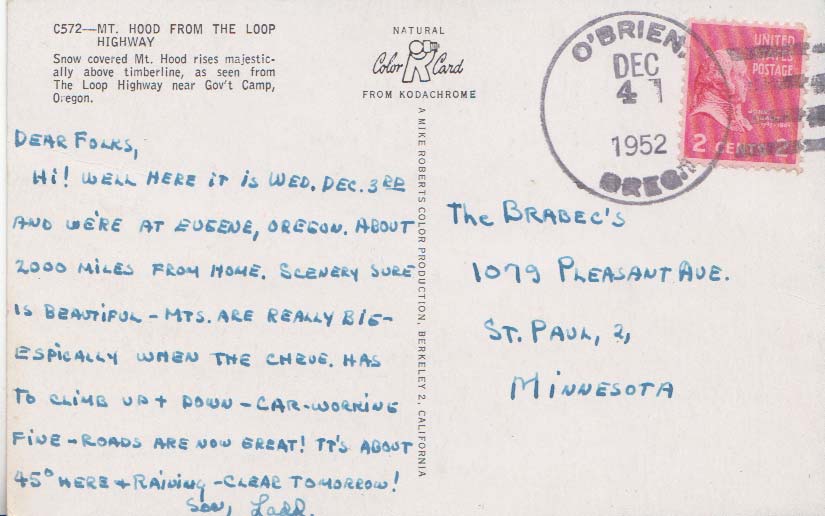 C572—MT. HOOD FROM THE LOOP
HIGHWAY
Snow covered Mt. Hood rises majestic-
ally above timberline, as seen from
The Loop Highway near Gov't Camp,
Oregon.
NATURAL
Color Card
FROM KODACHROME
O'BRIEN,
DEC
4
1952
OREG.
UNITED
STATES
POSTAGE
2 CENTS 2
A MIKE ROBERTS COLOR PRODUCTION, BERKELEY 2, CALIFORNIA
DEAR FOLKS,
HI! WELL HERE IT IS WED. DEC. 3RD
AND WE'RE AT EUGENE, OREGON. ABOUT
2000 MILES FROM HOME. SCENERY SURE
IS BEAUTIFUL - MTS. ARE REALLY BIG -
ESPICALLY WHEN THE CHEVE. HAS
TO CLIMB UP + DOWN - CAR-WORKING
FINE - ROADS ARE NOW GREAT! IT'S ABOUT
45° HERE + RAINING - CLEAR TOMORROW!
SON,
The BRABEC'S
1079 PLEASANT AVE.
ST. PAUL, 2,
MINNESOTA